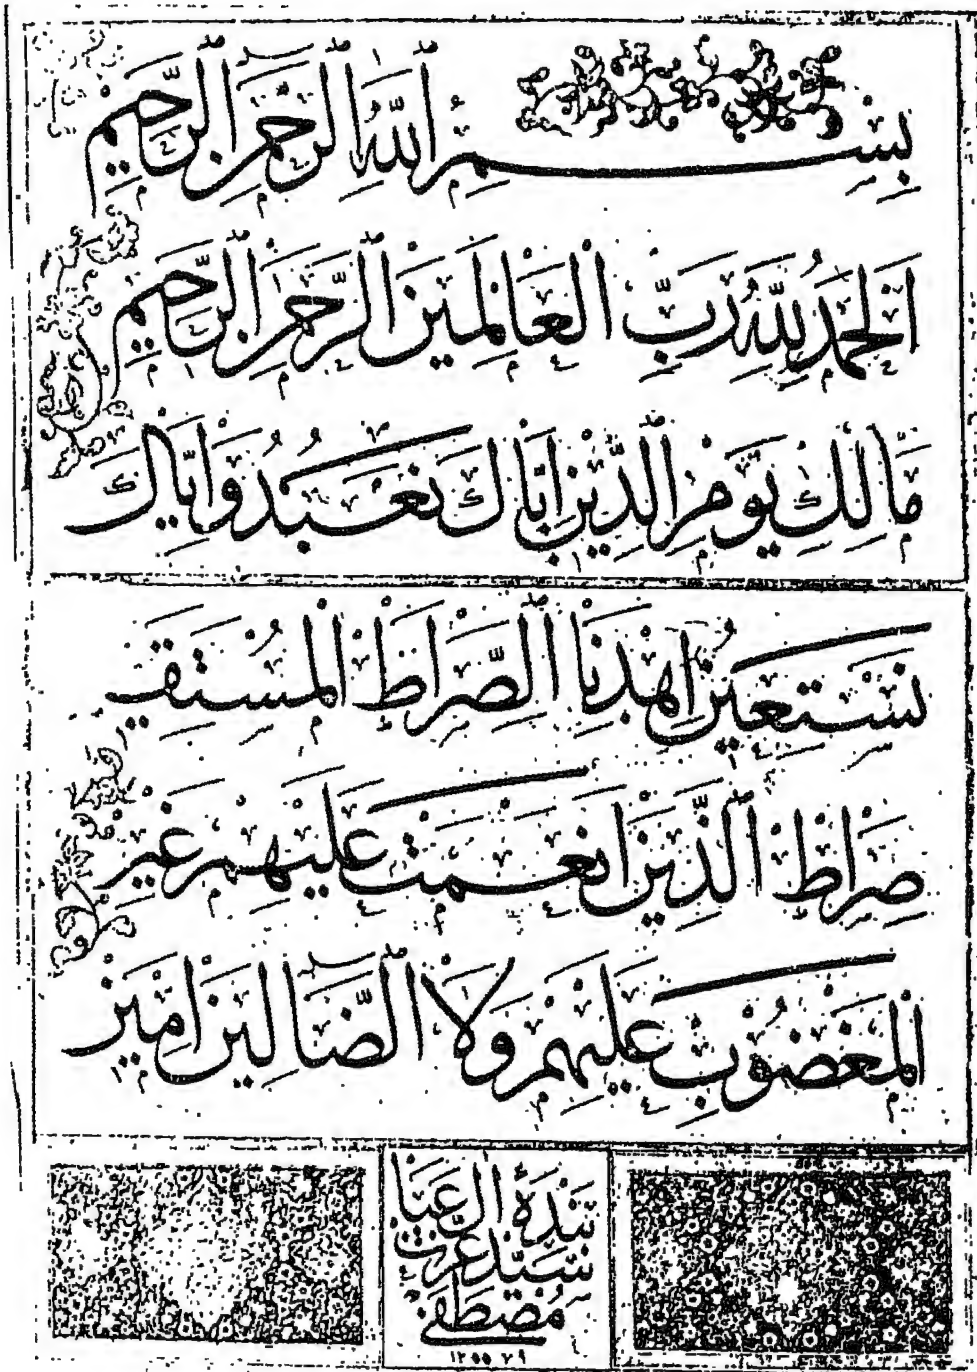 بِسْمِ اللهِ الرَّحْمٰنِ الرَّحِيمِ
اَلْحَمْدُ لِلّٰهِ رَبِّ الْعَالَمِينَ الرَّحْمٰنِ الرَّحِيمِ
مَالِكِ يَوْمِ الدِّينِ اِيَّاكَ نَعْبُدُ وَاِيَّاكَ
نَسْتَعِينُ اِهْدِنَا الصِّرَاطَ الْمُسْتَقِيمَ
صِرَاطَ الَّذِينَ اَنْعَمْتَ عَلَيْهِمْ غَيْرِ
الْمَغْضُوبِ عَلَيْهِمْ وَلَا الضَّالِّينَ اٰمِينَ
بندهٔ آل عبا
سيد عزت
مصطفى
١٢٥٥ ٧٩